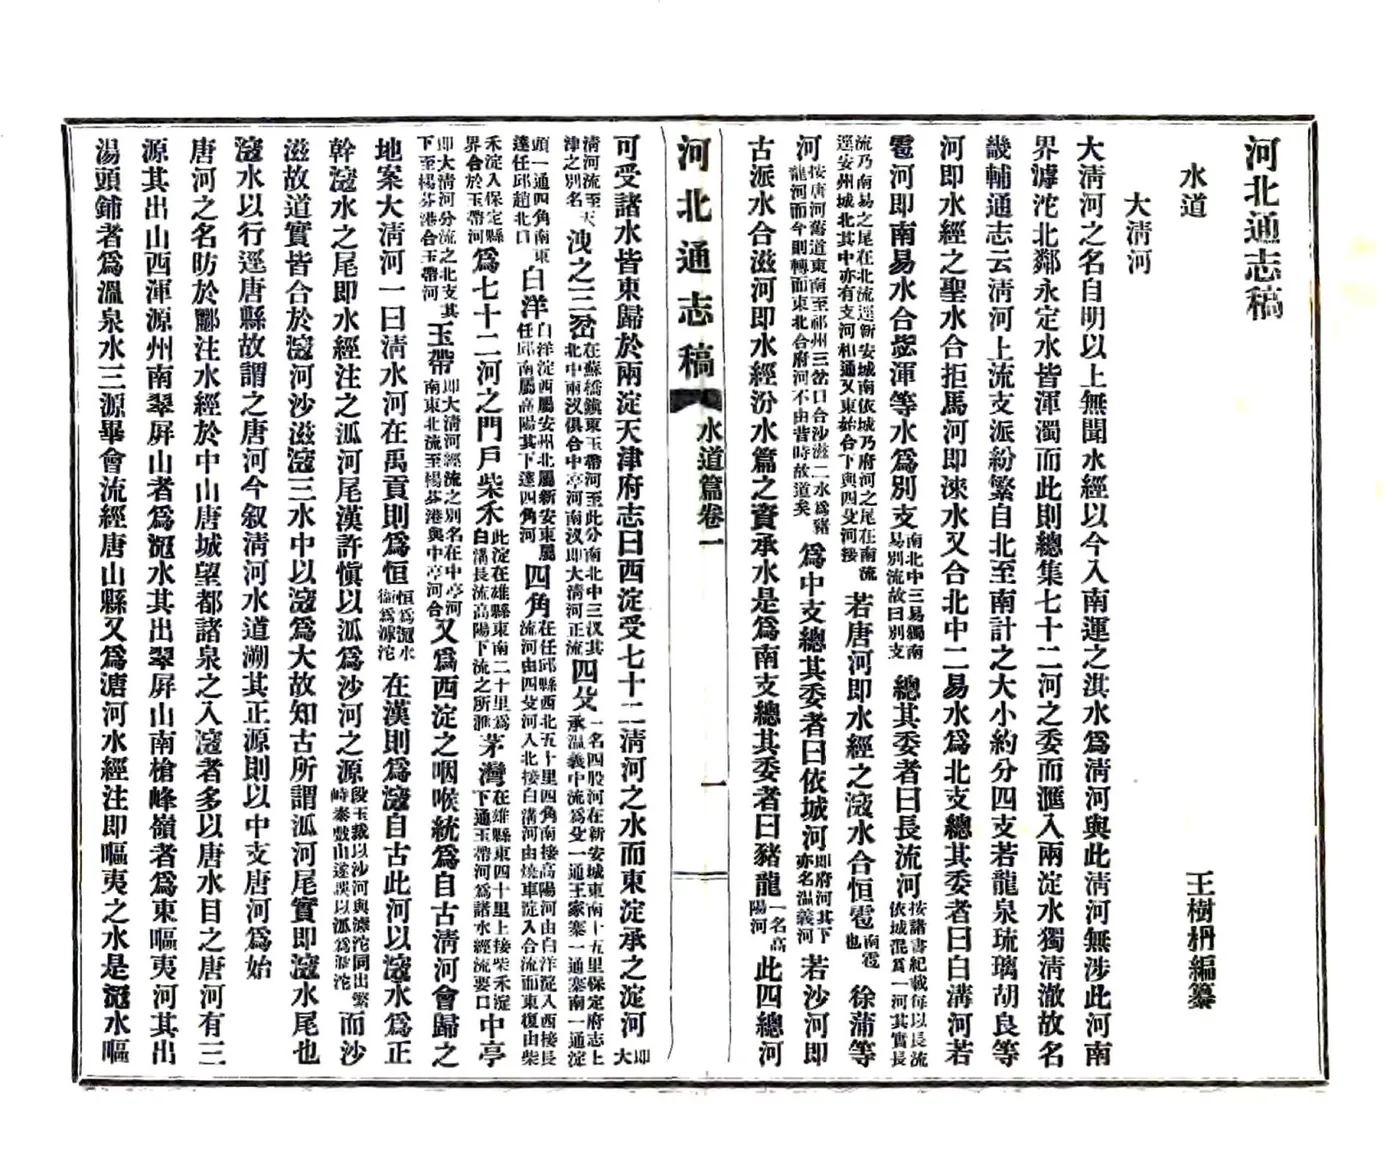 河北通志稿
水道
王樹枏編纂
大淸河
大淸河之名自明以上無聞水經以今入南運之淇水爲淸河與此淸河無涉此河南
界滹沱北鄰永定水皆渾濁而此則總集七十二河之委而滙入兩淀水獨淸澈故名
畿輔通志云淸河上流支派紛繁自北至南計之大小約分四支若龍泉琉璃胡良等
河卽水經之聖水合拒馬河卽淶水又合北中二易水爲北支總其委者曰白溝河若
雹河卽南易水合瀊渾等水爲別支南北中三易獨南易別流故曰別支總其委者曰長流河按諸書紀載每以長流依城混爲一河其實長
流乃南易之尾在北流逕新安城南依城乃府河之尾在南流逕安州城北其中亦有支河相通又東始合下與四㕛河接若唐河卽水經之滱水合恒雹南雹也徐蒲等
河按唐河舊道東南至祁州三岔口合沙滋二水爲豬龍河而今則轉而東北合府河不由昔時故道矣爲中支總其委者曰依城河卽府河其下亦名温義河若沙河卽
古派水合滋河卽水經汾水篇之資承水是爲南支總其委者曰豬龍一名高陽河此四總河
河北通志稿
水道篇卷一
一
可受諸水皆東歸於兩淀天津府志曰西淀受七十二淸河之水而東淀承之淀河卽大
淸河流至天津之別名洩之三岔在蘇橋鎭東玉帶河至此分南北中三汊其北中兩汊俱合中亭河南汊卽大淸河正流四㕛一名四股河在新安城東南十五里保定府志上承温義中流爲㕛一通王家寨一通寨南一通淀
頭一通四角南東達任邱趙北口白洋白洋淀西屬安州北屬新安東屬任邱南屬高陽其下達四角河四角在任邱縣西北五十里四角南接高陽河由白洋淀入西接長流河由四㕛河入北接白溝河由燒車淀入合流而東復由柴
禾淀入保定縣界合於玉帶河爲七十二河之門戶柴禾此淀在雄縣東南二十里爲白溝長流高陽下流之所滙茅灣在雄縣東四十里上接柴禾淀下通玉帶河爲諸水經流要口中亭
卽大淸河分流之北支其下至楊芬港合玉帶河玉帶卽大淸河經流之別名在中亭河南東北流至楊芬港與中亭河合又爲西淀之咽喉統爲自古淸河會歸之
地案大淸河一曰淸水河在禹貢則爲恒恒爲滱水衞爲滹沱在漢則爲滱自古此河以滱水爲正
幹滱水之尾卽水經注之泒河尾漢許愼以泒爲沙河之源段玉裁以沙河與滹沱同出繁峙泰戲山遂誤以泒爲滹沱而沙
滋故道實皆合於滱河沙滋滱三水中以滱爲大故知古所謂泒河尾實卽滱水尾也
滱水以行逕唐縣故謂之唐河今叙淸河水道溯其正源則以中支唐河爲始
唐河之名昉於酈注水經於中山唐城望都諸泉之入滱者多以唐水目之唐河有三
源其出山西渾源州南翠屏山者爲滱水其出翠屏山南槍峰嶺者爲東嘔夷河其出
湯頭鋪者爲溫泉水三源畢會流經唐山縣又爲溏河水經注卽嘔夷之水是滱水嘔